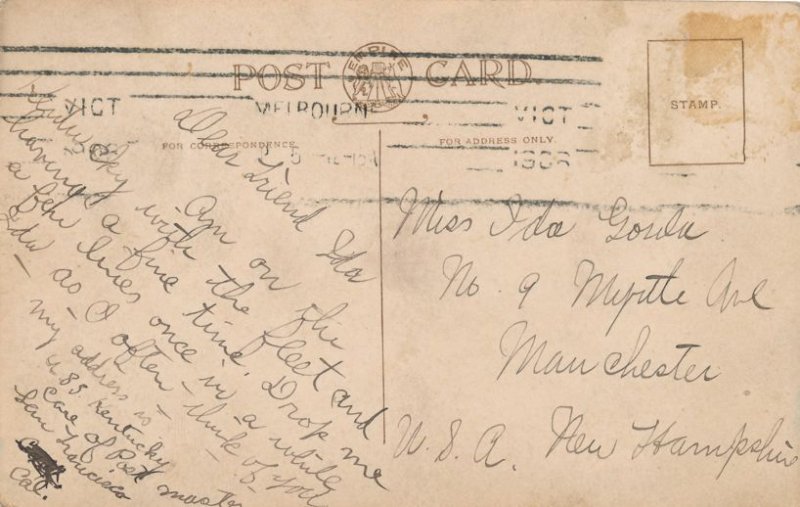 POST CARD
EMPIRE
VICT MELBOURNE VICT
1908
FOR CORRESPONDENCE.
FOR ADDRESS ONLY.
STAMP.
Dear Friend Ida
Am on the
Kentucky with the fleet and
having a fine time. Drop me
a few lines once in a while
Ida as I often - think of you
my address is
U S S Kentucky
Care of Post master
San Francisco
Cal.
Miss Ida
No. 9 Myrtle Ave
Manchester
U. S. A. New Hampshire